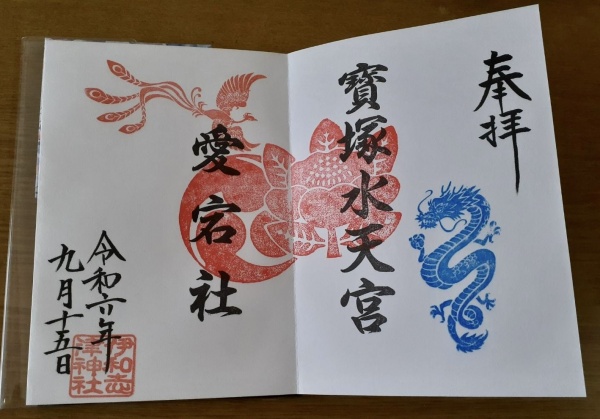 奉拝
寶塚水天宮
愛宕社
令和六年
九月十五日
伊和志
津神社